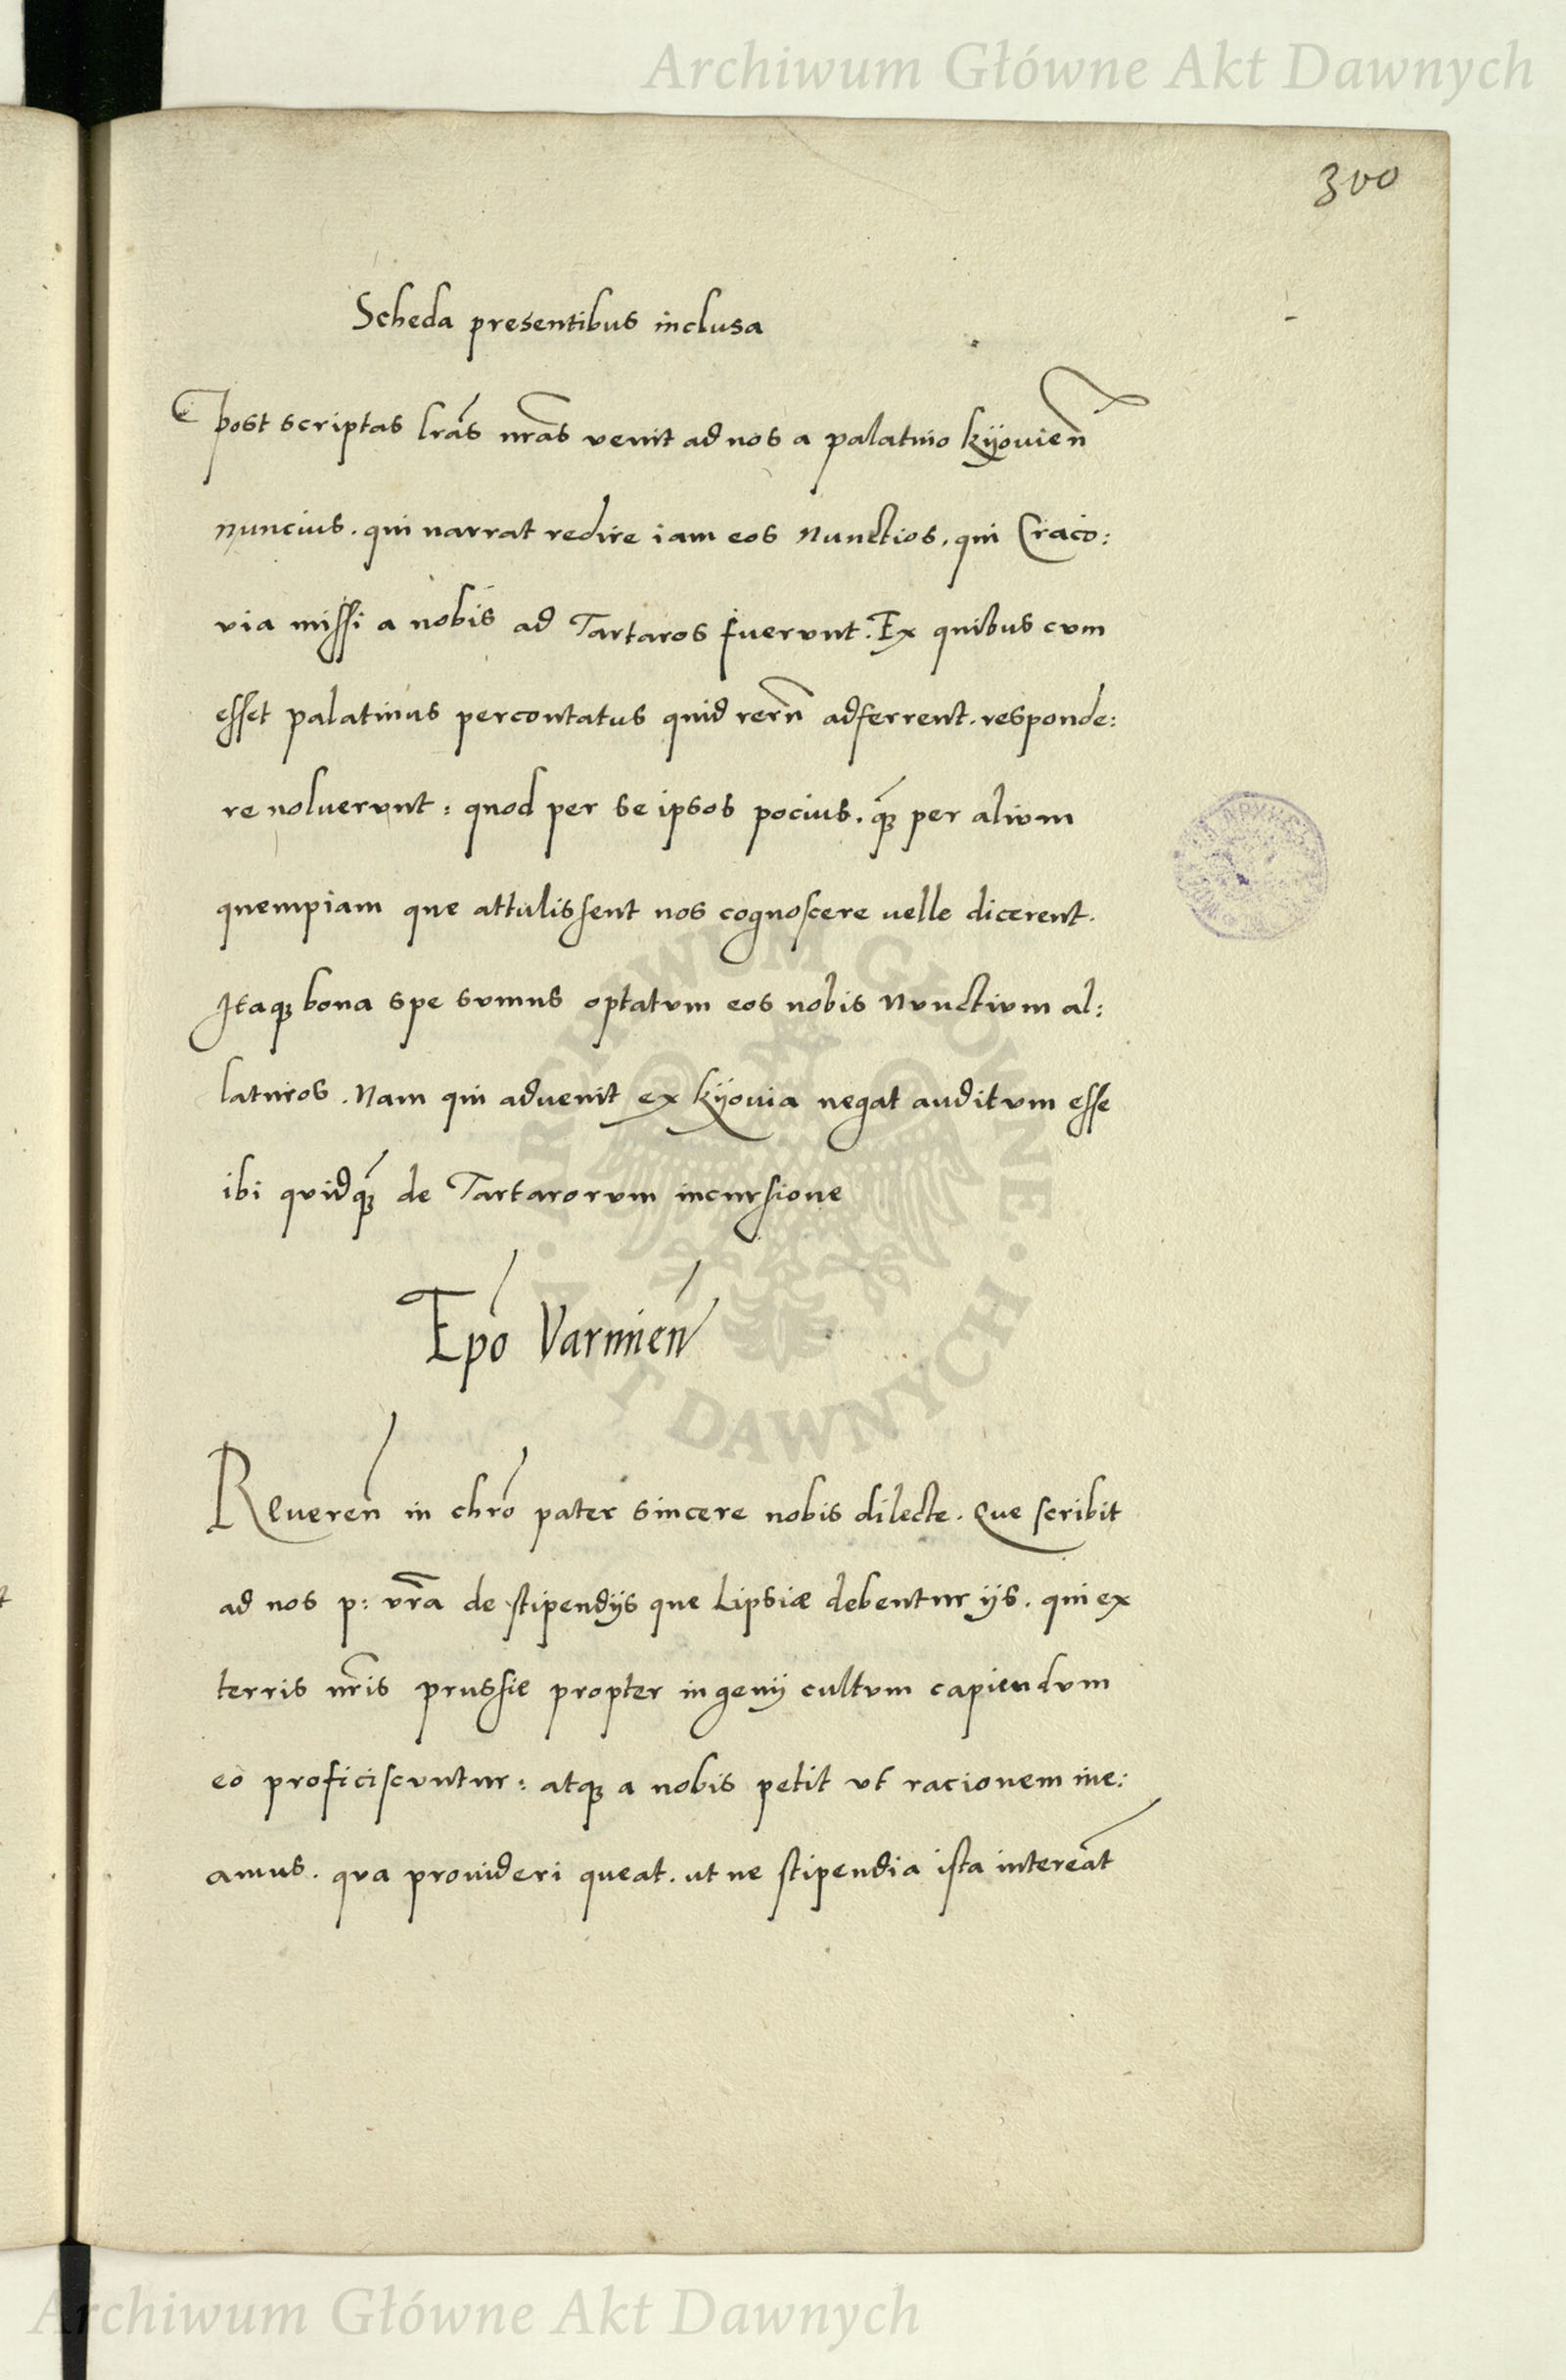 Archiwum Główne Akt Dawnych
300
Scheda presentibus inclusa
Post scriptas lrãs nrãs venit ad nos a palatino kÿovien̄
nuncius . qui narrat redire iam eos nunctios . qui Craco:
via missi a nobis ad Tartaros fuerunt . Ex quibus cum
esset palatinus percontatus quid rerū adferrent . responde:
re noluerunt : quod per se ipsos pocius . q̃ꝫ per alium
quempiam que attulissent nos cognoscere velle dicerent .
Itaqꝫ bona spe sumus optatum eos nobis nunctium al:
laturos . Nam qui advenit ex kÿovia negat auditum esse
ibi quidq̃ꝫ de Tartarorum incursione
ARCHIWUM GŁÓWNE · AKT DAWNYCH ·
Epõ Varmien̄
Reveren̄ in chrõ pater sincere nobis dilecte . Que scribit
ad nos p: vr̃a de stipendijs que Lipsiæ debentur ijs . qui ex
terris nr̃is prussie propter ingenij cultum capiendum
eo proficiscuntur : atqꝫ a nobis petit ut racionem ine:
amus . qua provideri queat . ut ne stipendia ista intereãt
Archiwum Główne Akt Dawnych